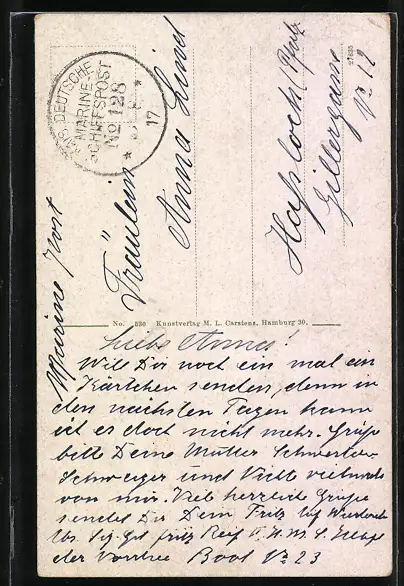 KAIS. DEUTSCHE
MARINE-
SCHIFFSPOST
No 128
17
Marine Post
Fräulein
Anna Lind
Haßloch (Pfalz
Gillergasse
No 12
27635
No. 536 Kunstverlag M. L. Carstens, Hamburg 30.
Liebe Anna!
Will Dir noch ein mal ein
Kärtchen senden, denn in
den nächsten Tagen kann
ich es doch nicht mehr. Grüße
bitte Deine Mutter Schwester
Schwager und vielmals
von mir. Viele herzliche Grüße
sendet Dir Dein Fritz
Fritz Reiß
der Vorhut Boot No 23